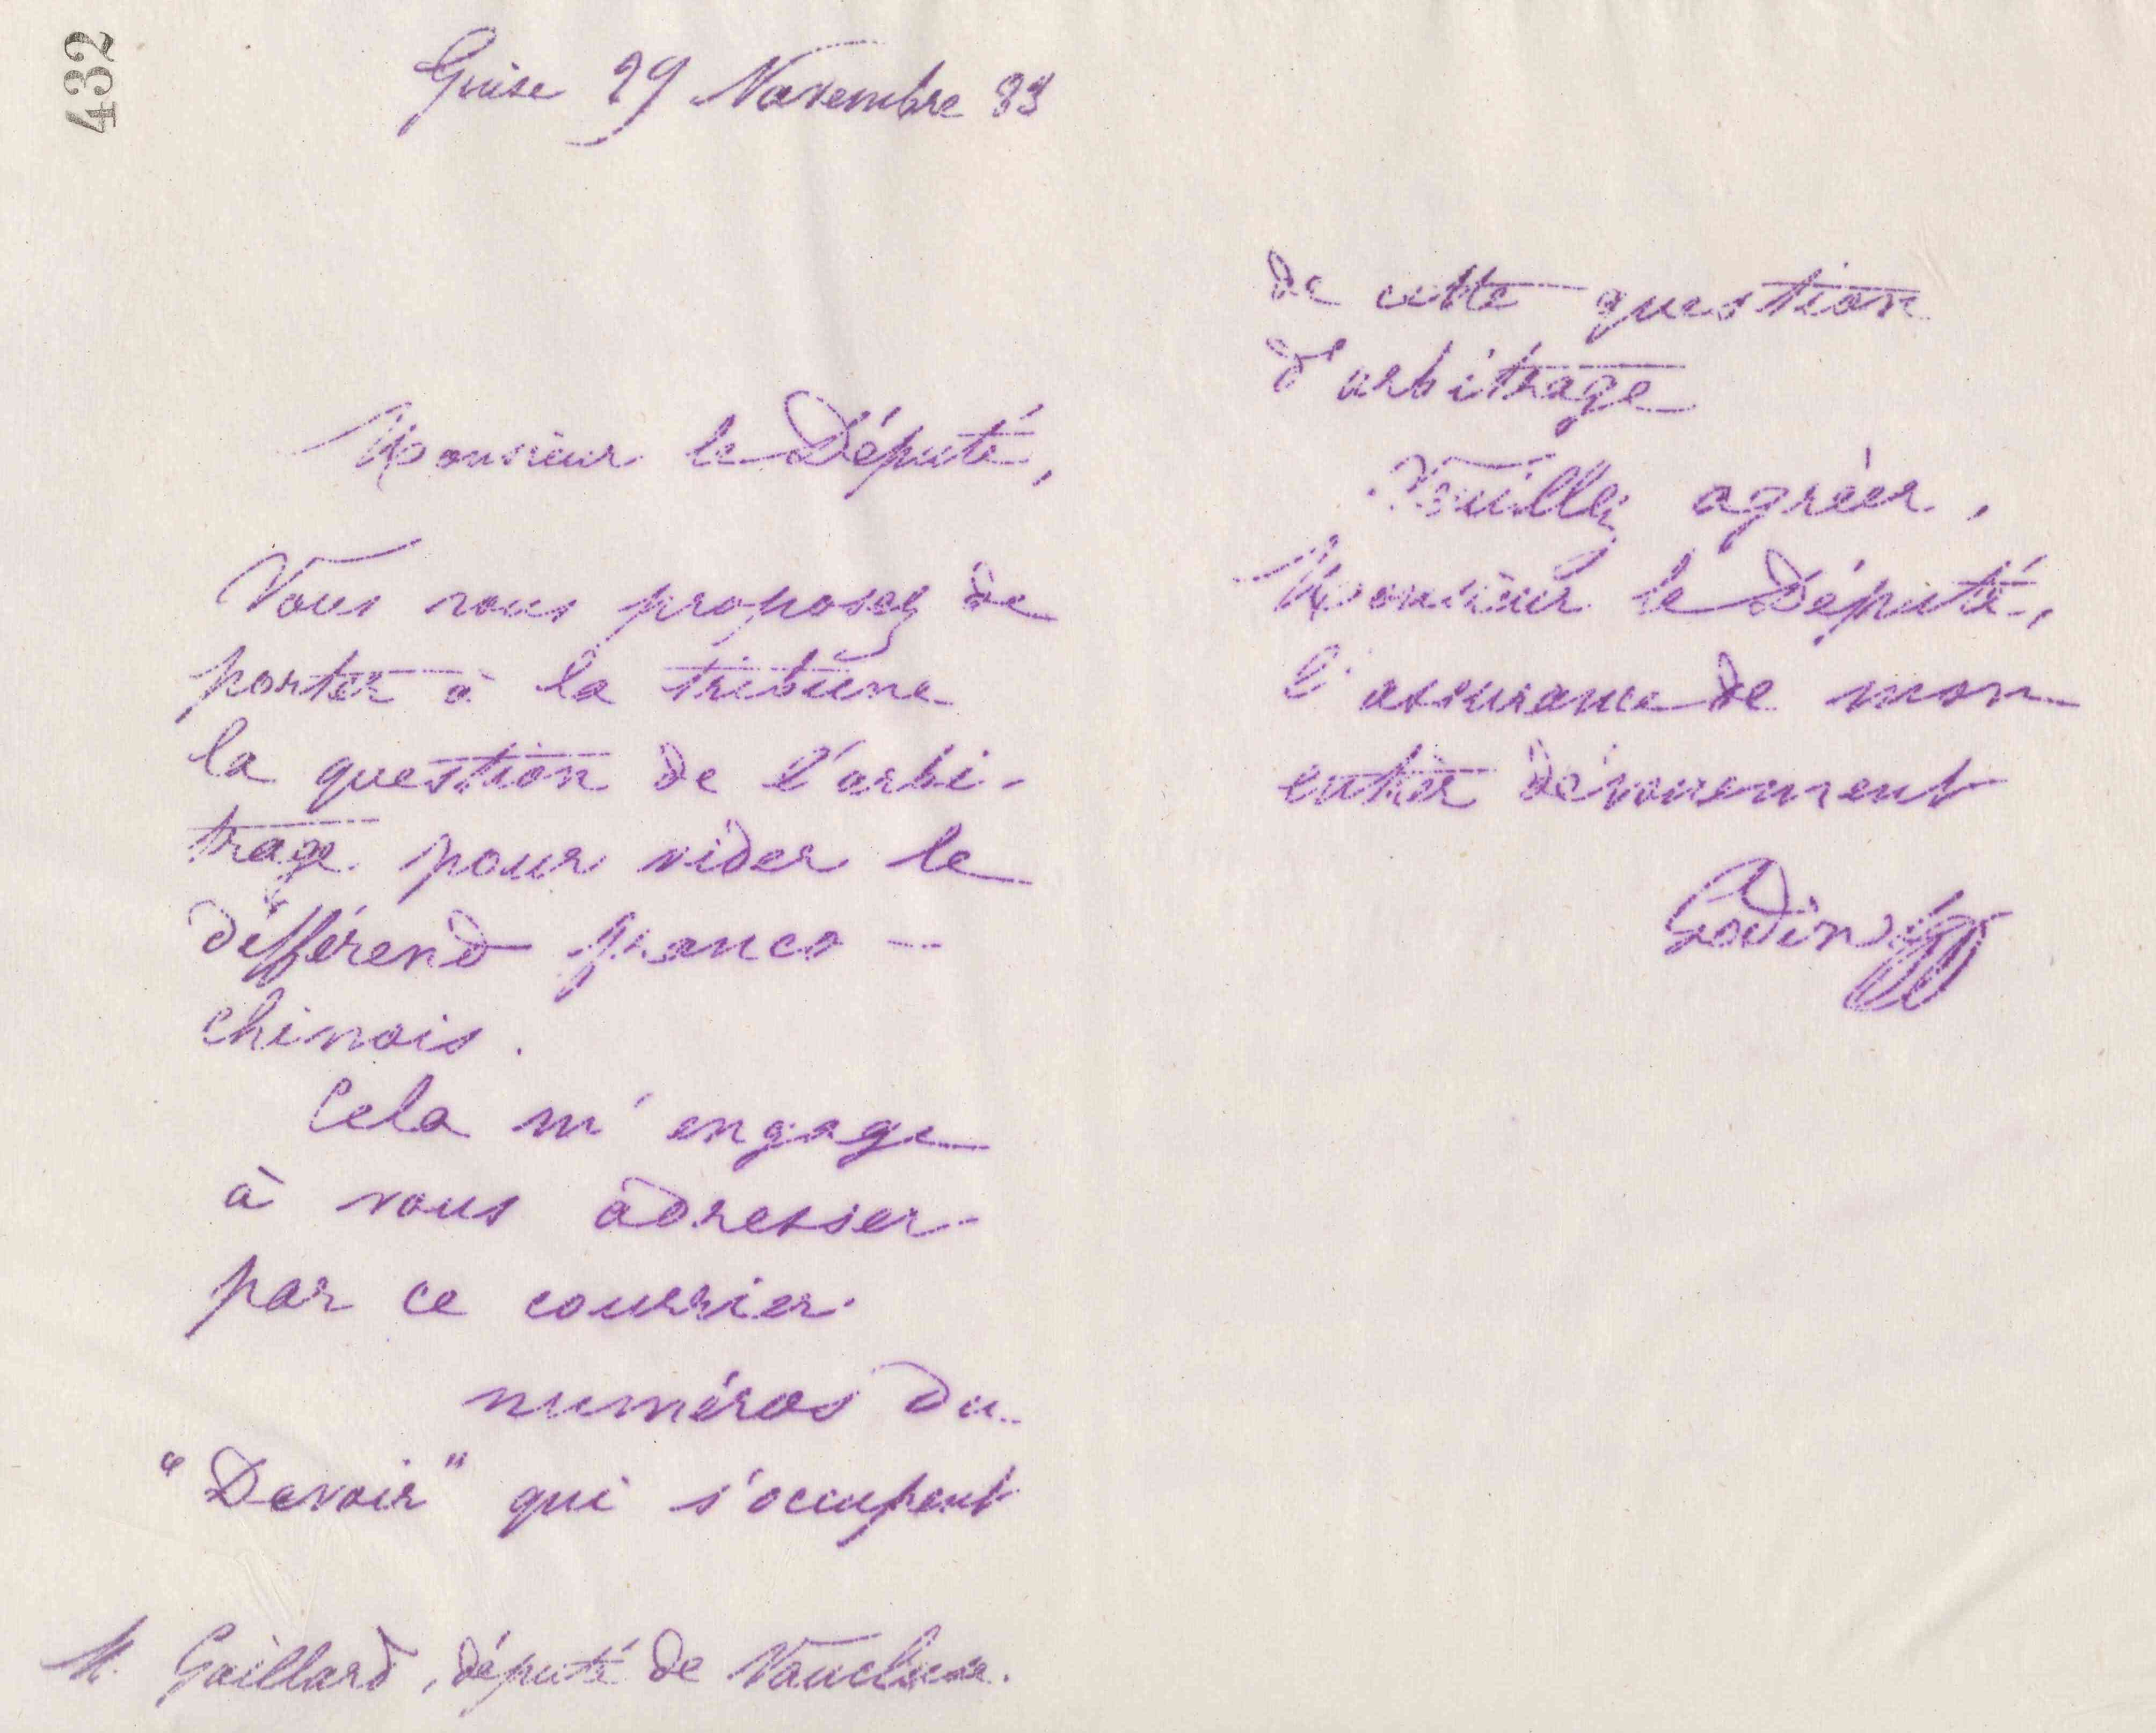 432
Guise 29 Novembre 83
Monsieur le Député,
Vous vous proposez de
porter à la tribune
la question de l'arbi-
trage pour vider le
différend franco-
chinois.
Cela m'engage
à vous adresser
par ce courrier
numéros du
"Devoir" qui s'occupent
M. Gaillard, député de Vaucluse.
de cette question
d'arbitrage
Veuillez agréer,
Monsieur le Député,
l'assurance de mon
entier dévouement
Godin